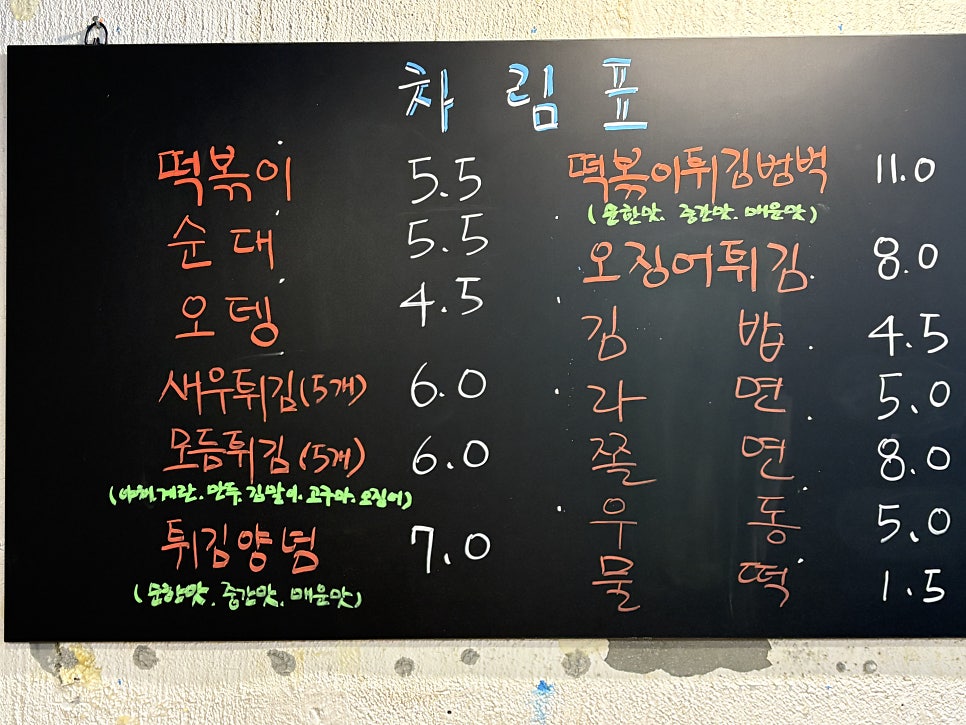 차림표
떡볶이 5.5
순대 5.5
오뎅 4.5
새우튀김(5개) 6.0
모듬튀김(5개) 6.0
(야채계란.만두.김말이.고구마.오징어)
튀김양념 7.0
(순한맛.중간맛.매운맛)
떡볶이튀김범벅 11.0
(순한맛.중간맛.매운맛)
오징어튀김 8.0
김밥 4.5
라면 5.0
쫄면 8.0
우동 5.0
물떡 1.5